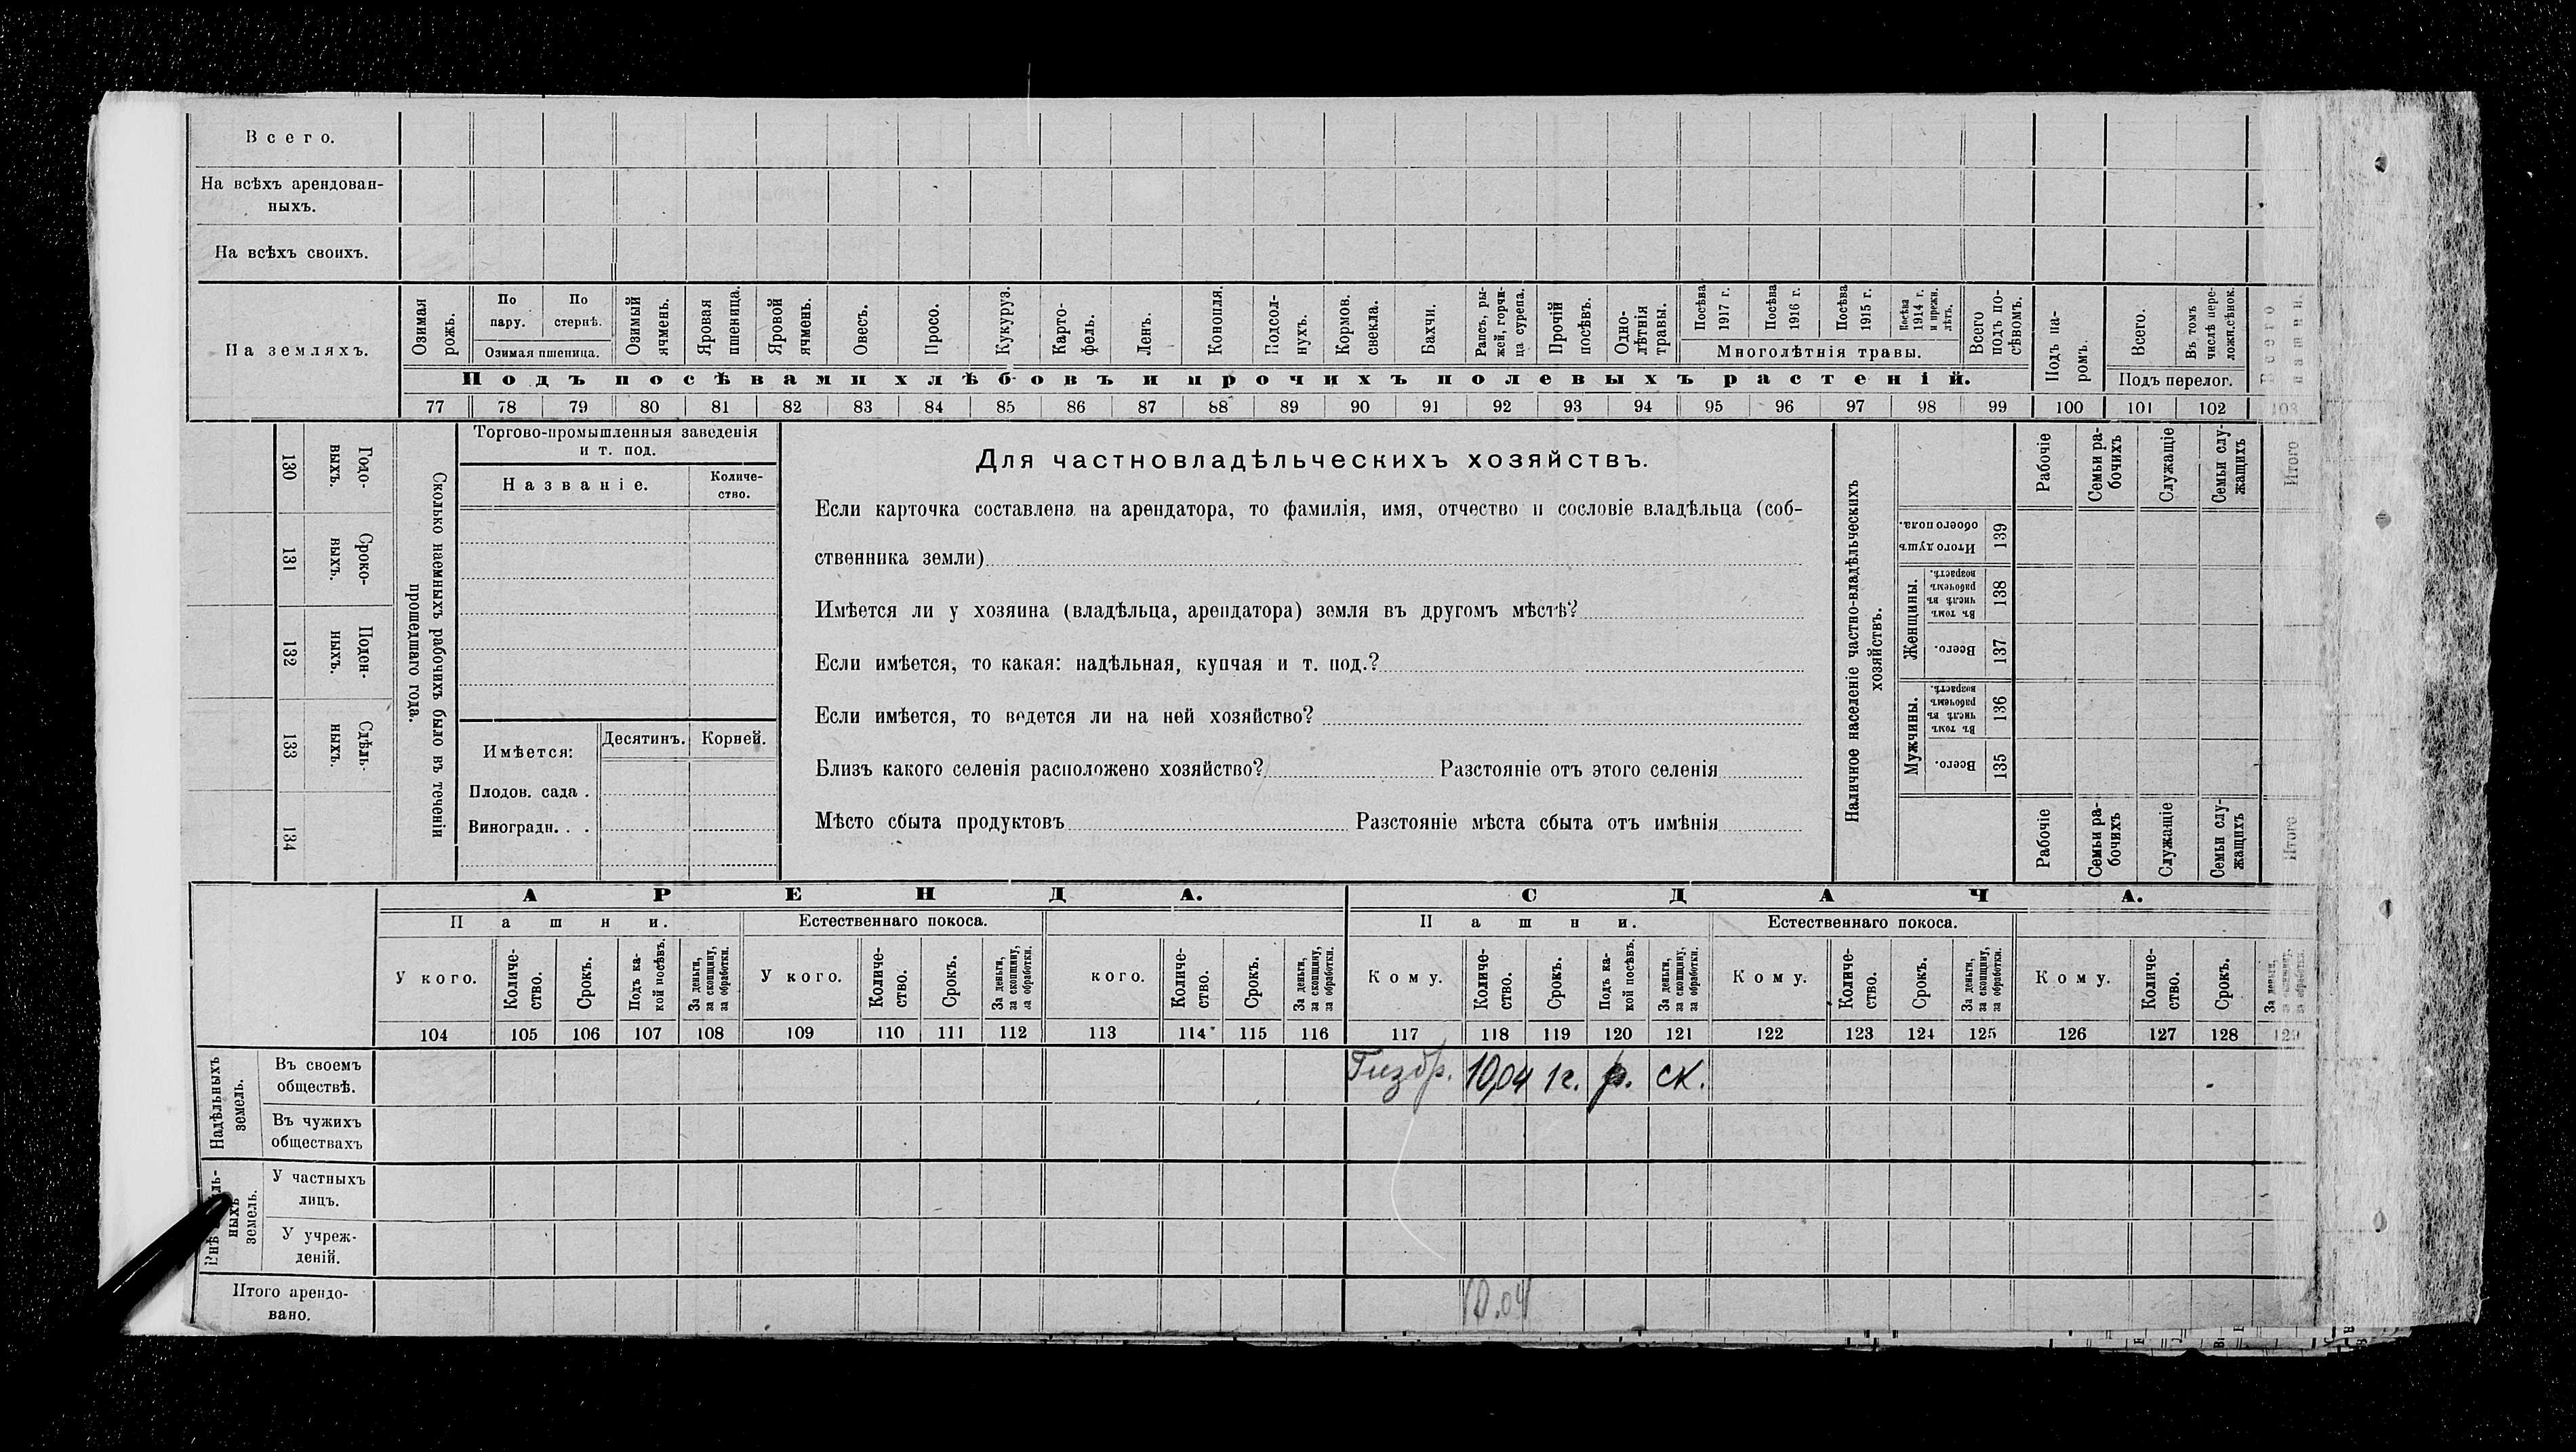 Всего.
На всѣхъ арендован-
ныхъ.
На всѣхъ своихъ.
На земляхъ.
Озимая рожь.
По пару.
По стернѣ.
Озимая пшеница.
Озимый ячмень.
Яровая пшеница.
Яровой ячмень.
Овесъ.
Просо.
Кукуруз.
Карто-
фель.
Ленъ.
Конопля.
Подсол-
нухъ.
Кормов. свекла.
Бахчи.
Рапсъ, ры-
жей, горчи-
ца сурепа.
Прочій посѣвъ.
Одно-
лѣтнія травы.
Посѣва 1917 г.
Посѣва 1916 г.
Посѣва 1915 г.
Посѣва 1914 г. и прежн. лѣтъ.
Многолѣтнія травы.
Всего подъ по-
сѣвомъ.
Подъ па-
ромъ.
Всего.
Въ томъ числѣ пере-
ложн.сѣнок.
Подъ перелог.
Всего пашни.
Подъ посѣвами хлѣбовъ и прочихъ полевыхъ растеній.
77 78 79 80 81 82 83 84 85 86 87 88 89 90 91 92 93 94 95 96 97 98 99 100 101 102 103
Годо-
выхъ.
130
Сроко-
выхъ.
131
Поден-
ныхъ.
132
Сдѣль-
ныхъ.
133
134
Сколько наемныхъ рабочихъ было въ теченіи
прошедшаго года.
Торгово-промышленныя заведенія
и т. под.
Названіе.
Количе-
ство.
Имѣется:
Десятинъ.
Корней.
Плодов. сада .
Виноградн. . .
Для частновладѣльческихъ хозяйствъ.
Если карточка составлена на арендатора, то фамилія, имя, отчество и сословіе владѣльца (соб-
ственника земли)
Имѣется ли у хозяина (владѣльца, арендатора) земля въ другомъ мѣстѣ?
Если имѣется, то какая: надѣльная, купчая и т. под.?
Если имѣется, то ведется ли на ней хозяйство?
Близъ какого селенія расположено хозяйство? Разстояніе отъ этого селенія
Мѣсто сбыта продуктовъ Разстояніе мѣста сбыта отъ имѣнія
Наличное населеніе частно-владѣльческихъ
хозяйствъ.
Рабочіе
Семьи ра-
бочихъ
Служащіе
Семьи слу-
жащихъ
Итого
Итого душъ обоего пола.
139
Женщины.
Въ томъ числѣ въ рабочемъ возрастѣ.
138
Всего.
137
Мужчины.
Въ томъ числѣ въ рабочемъ возрастѣ.
136
Всего.
135
Рабочіе
Семьи ра-
бочихъ
Служащіе
Семьи слу-
жащихъ
Итого
АРЕНДА.
СДАЧА.
Пашни.
Естественнаго покоса.
Пашни.
Естественнаго покоса.
У кого.
Количе-
ство.
Срокъ.
Подъ ка-
кой посѣвъ.
За деньги, за скопщину, за обработки.
У кого.
Количе-
ство.
Срокъ.
За деньги, за скопщину, за обработки.
кого.
Количе-
ство.
Срокъ.
За деньги, за скопщину, за обработки.
Кому.
Количе-
ство.
Срокъ.
Подъ ка-
кой посѣвъ.
За деньги, за скопщину, за обработки.
Кому.
Количе-
ство.
Срокъ.
За деньги, за скопщину, за обработки.
Кому.
Количе-
ство.
Срокъ.
За деньги, за скопщину, за обработки.
104 105 106 107 108 109 110 111 112 113 114 115 116 117 118 119 120 121 122 123 124 125 126 127 128 129
Надѣльныхъ
земель.
Въ своемъ
обществѣ.
10,04 1г. р. ск.
Въ чужихъ
обществахъ
ныхъ
земель.
У частныхъ
лицъ.
У учреж-
деній.
Итого арендо-
вано.
10.04